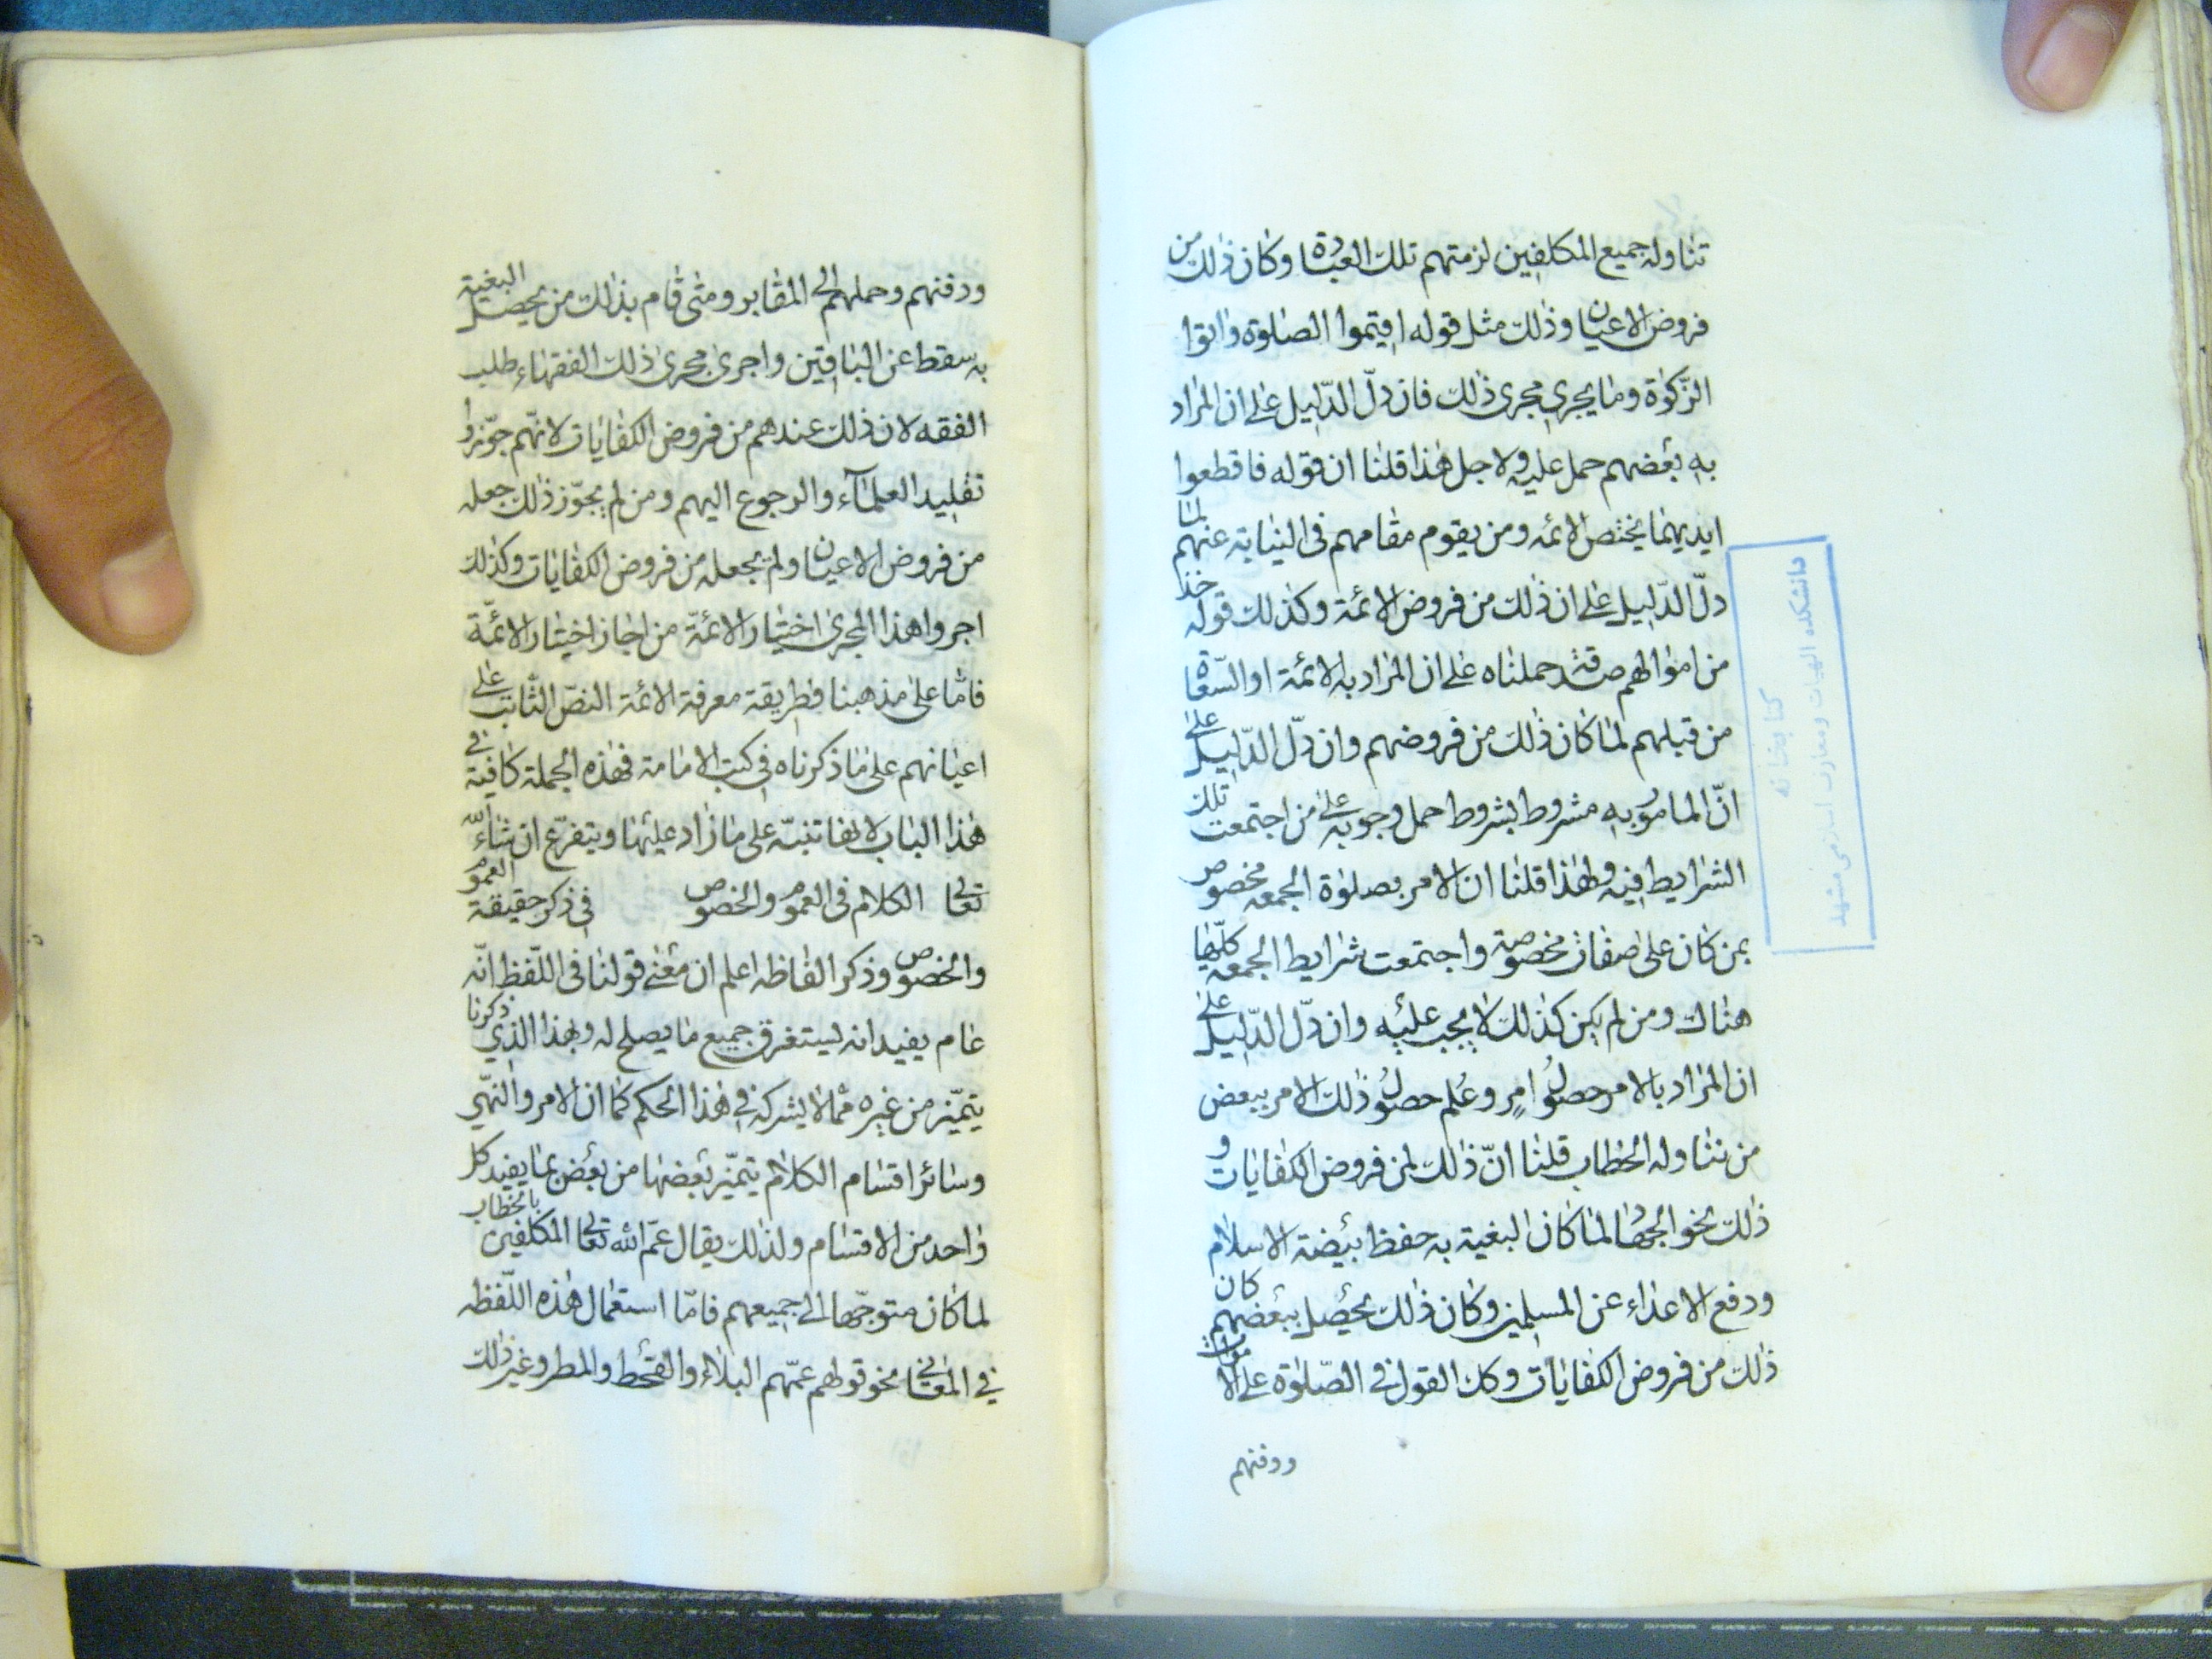 تناوله جميع المكلفين لزمتهم تلك العبادة وكان ذلك من
فروض الاعيان وذلك مثل قوله اقيموا الصلوة واتوا
الزّكوة وما يجرى مجرى ذلك فان دلّ الدّليل على ان المراد
به بعضهم حمل عليه ولاجل هذا قلنا ان قوله فاقطعوا
ايديهما يختص الائمه ومن يقوم مقامهم فى النيابة عنهم لما
دلّ الدّليل على ان ذلك من فروض الائمة وكذلك قوله خذ
من اموالهم صدقة حملناه على ان المراد به الائمة او السّعاة
من قبلهم لما كان ذلك من فروضهم وان دلّ الدّليل على
انّ المامور به مشروط بشروط حمل وجوبه على من اجتمعت تلك
الشرايط فيه ولهذا قلنا ان الامر بصلوة الجمعه مخصوص
بمن كان على صفات مخصوصة واجتمعت شرايط الجمعه كلّها
هناك ومن لم يكن كذلك لا يجب عليه وان دلّ الدّليل على
ان المراد بالامر حصولُ امرٍ وعُلم حصولُ ذلك الامر ببعض
من تناوله الخطاب قلنا انّ ذلك لمن فروض الكفايات و
ذلك نحو الجهاد لما كان البغية به حفظ بيضة الاسلام
ودفع الاعداء عن المسلمين وكان ذلك يحصل ببعضهم كان
ذلك من فروض الكفايات وكك القول فى الصّلوة على الاموات
ودفنهم
ودفنهم وحملهم الى المقابر ومتى قام بذلك من يحصل البغية
به سقط عن الباقين واجرى مجرى ذلك الفقهاء طلب
الفقه لان ذلك عندهم من فروض الكفايات لانّهم جوّزوا
تقليد العلماء والرجوع اليهم ومن لم يجوّز ذلك جعله
من فروض الاعيان ولم يجعله من فروض الكفايات وكذلك
اجروا هذا المجرى اختيار الائمّة من اجاز اختيار الائمّة
فامّا على مذهبنا فطريقة معرفة الائمة النصّ الثّابت على
اعيانهم على ما ذكرناه فى كتب الامامة فهذه الجملة كافية فى
هذا الباب لانها تنبّه على ما زاد عليها ويتفرّع ان شاء اللّه
تعالى الكلام فى العموم والخصوص فى ذكر حقيقة العموم
والخصوص وذكر الفاظه اعلم ان معنى قولنا فى اللّفظ انّه
عام يفيد انه يستغرق جميع ما يصلح له وبهذا الذي ذكرنا
يتميّز من غيره ممّا لا يشركه فى هذا الحكم كما ان الامر والنّهي
وسائر اقسام الكلام يتميّز بعضها من بعض بما يفيد كل
واحد من الاقسام ولذلك يقال عمّ الله تعالى المكلفين بالخطاب
لما كان متوجّها الى جميعهم فامّا استعمال هذه اللّفظه
في المعانى نحو قولهم عمّهم البلاء والقحط والمطر وغير ذلك
دانشكده الهيات ومعارف اسلامى مشهد
كتابخانه